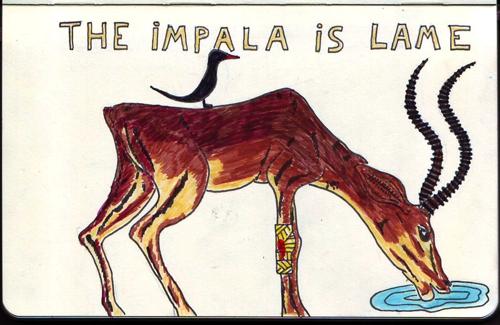 THE iMPALA iS LAME